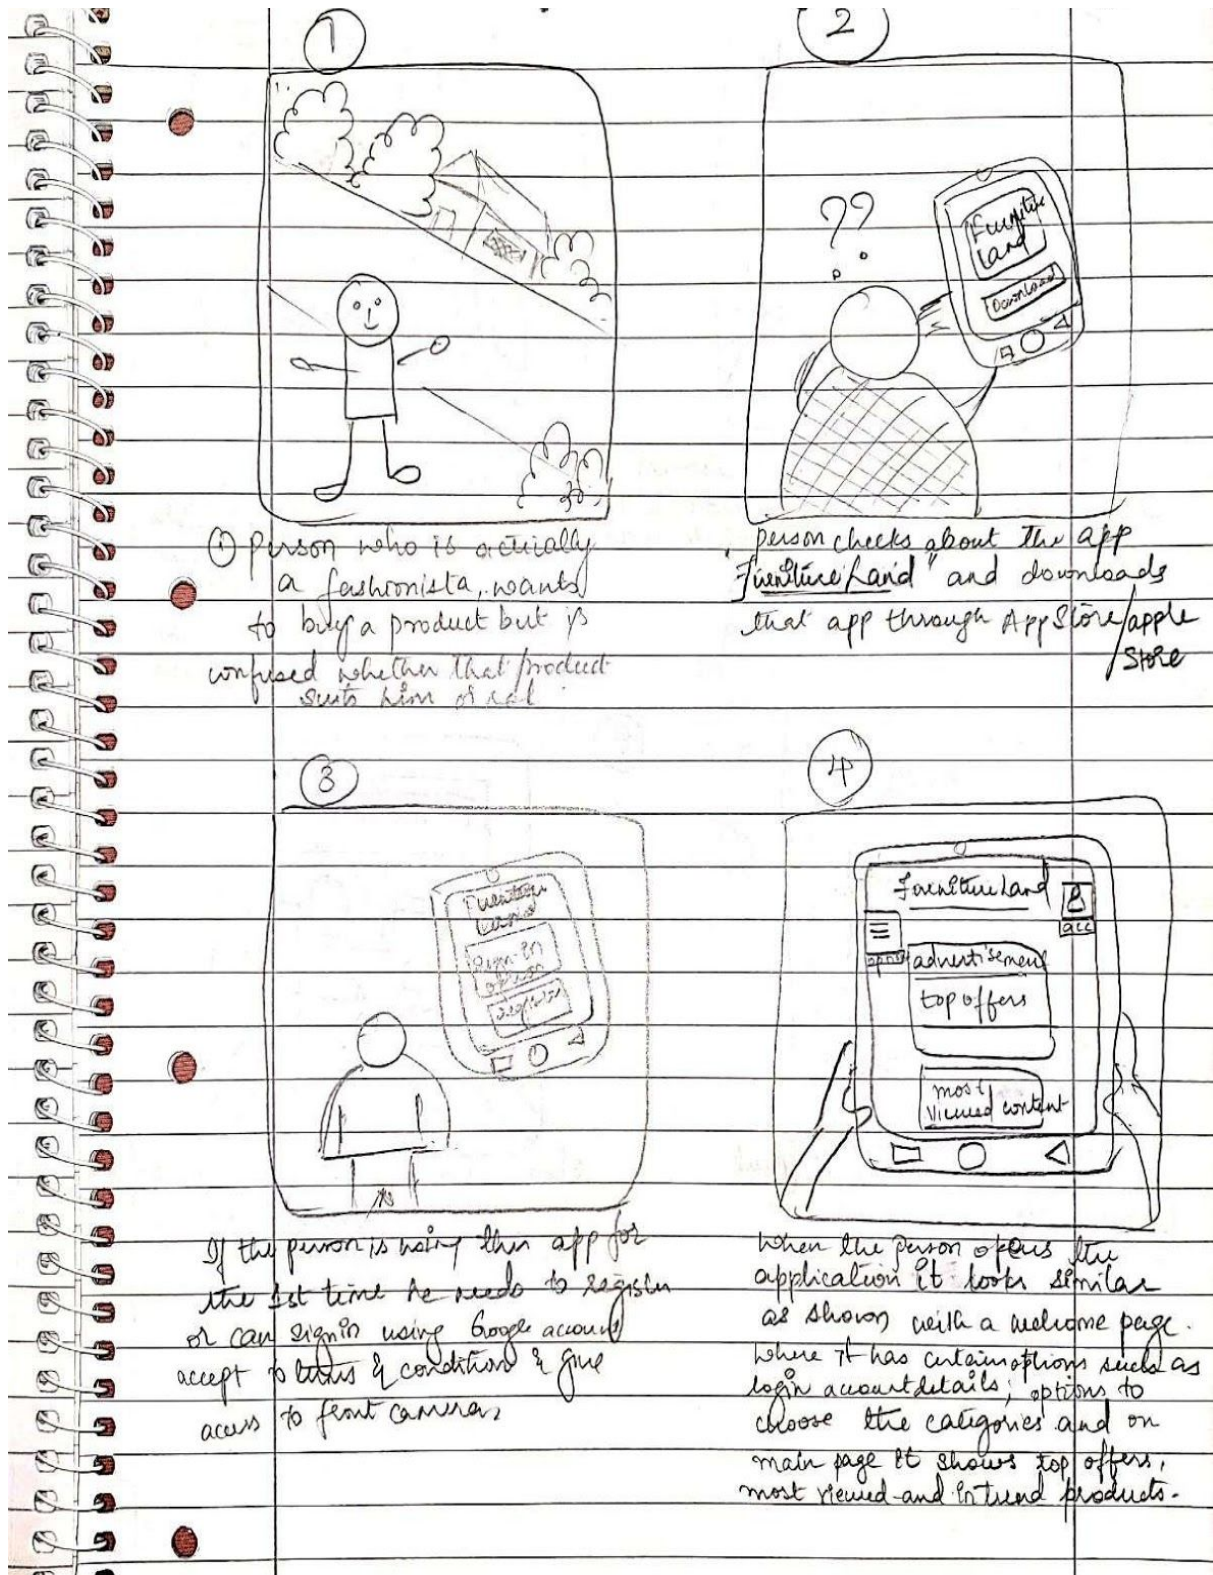 1
2
??
Furniture
Land
Download
① person who is actually
a fashionista, wants
to buy a product but is
confused whether that product
suits him or not
person checks about the app
"Furniture Land" and downloads
that app through App Store/apple
Store
3
4
Furniture
Land
sign-in
option
register
Furniture Land
acc
advertisement
top offers
most
viewed content
If the person is using this app for
the 1st time he needs to register
or can sign in using Google account
accept to terms & condition & give
access to front cameras
When the person opens the
application it looks similar
as shown with a welcome page.
where it has certain options such as
login account details; options to
choose the categories and on
main page it shows top offers,
most viewed and in trend products.